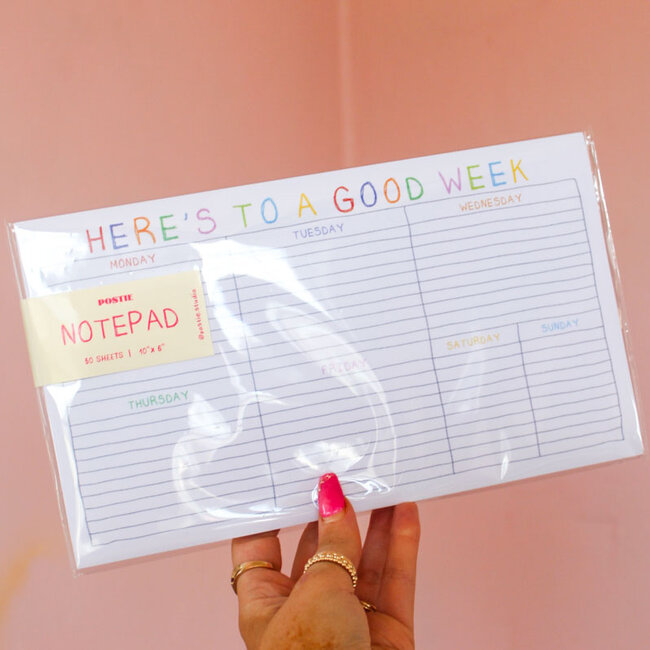 HERE'S TO A GOOD WEEK
MONDAY
TUESDAY
WEDNESDAY
POSTIE
NOTEPAD
50 SHEETS | 10" X 6"
@postie.studio
THURSDAY
FRIDAY
SATURDAY
SUNDAY